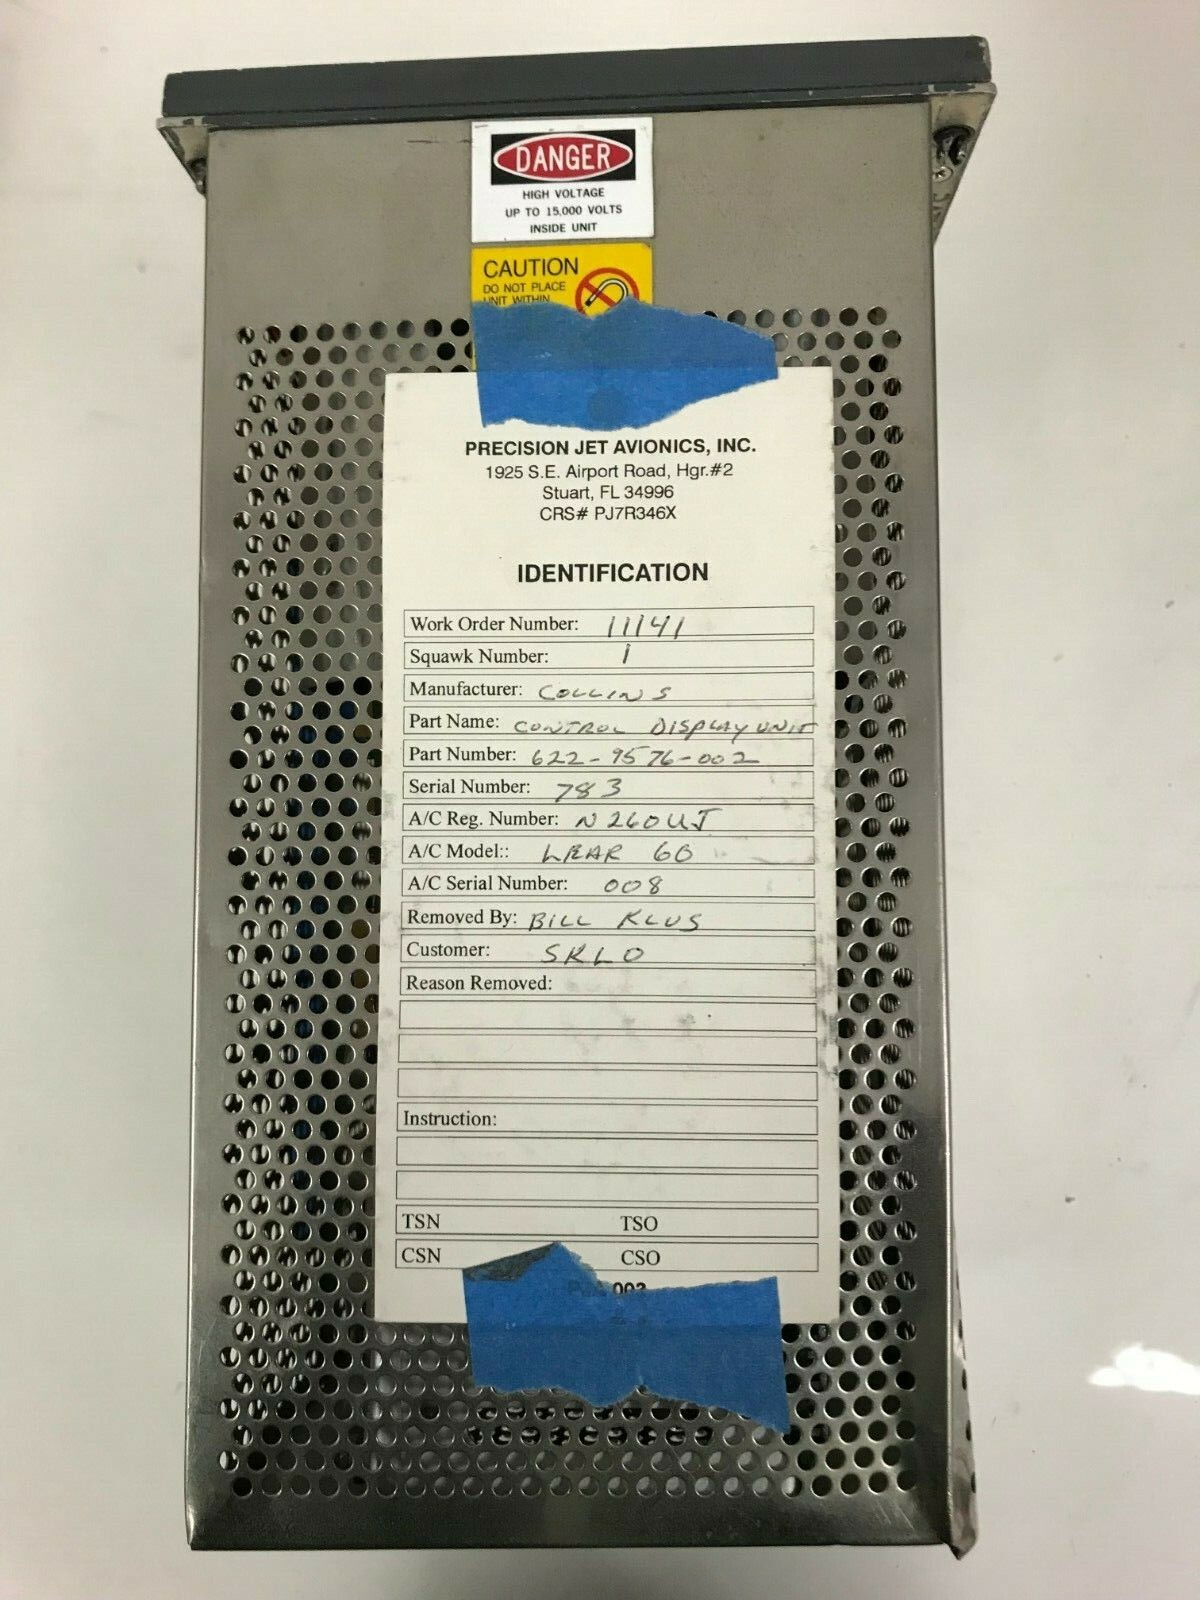 DANGER
HIGH VOLTAGE
UP TO 15,000 VOLTS
INSIDE UNIT
CAUTION
DO NOT PLACE
UNIT WITHIN
PRECISION JET AVIONICS, INC.
1925 S.E. Airport Road, Hgr.#2
Stuart, FL 34996
CRS# PJ7R346X
IDENTIFICATION
Work Order Number: 11141
Squawk Number: 1
Manufacturer: COLLINS
Part Name: CONTROL DISPLAY UNIT
Part Number: 622-9576-002
Serial Number: 783
A/C Reg. Number: N260UJ
A/C Model:: LEAR 60
A/C Serial Number: 008
Removed By: BILL KLUS
Customer: SKLO
Reason Removed:
Instruction:
TSN TSO
CSN CSO
002